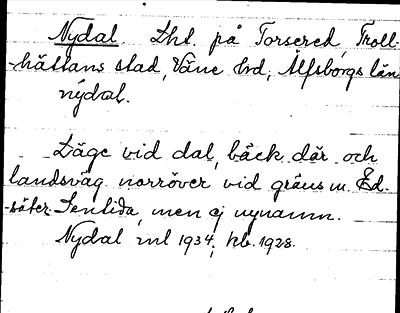 Nydal Lht. på Torsered, Troll-
hättans stad, Väne hd, Älfsborgs län
nýdal.
Läge vid dal, bäck där och
landsväg norröver vid gräns m. Ed-
säter. Sentida, men ej nynamn.
Nydal ml 1934, kb. 1928.